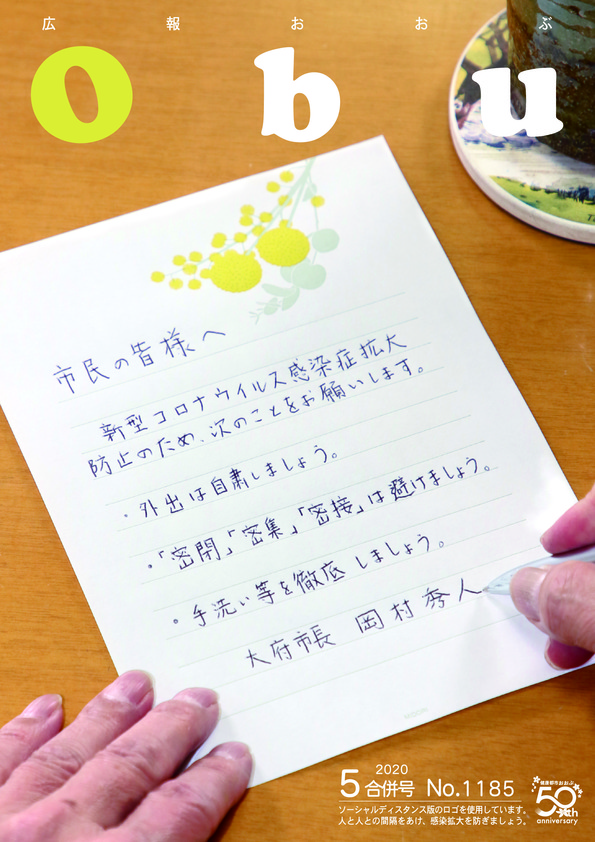 広報おおぶ
Obu
市民の皆様へ
新型コロナウイルス感染症拡大
防止のため、次のことをお願いします。
・外出は自粛しましょう。
・「密閉」「密集」「密接」は避けましょう。
・手洗い等を徹底しましょう。
大府市長 岡村秀人
2020
5合併号 No.1185
ソーシャルディスタンス版のロゴを使用しています。
人と人との間隔をあけ、感染拡大を防ぎましょう。
健康都市おおぶ
50th
anniversary